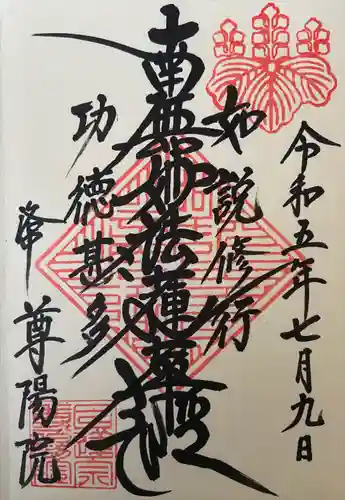 令和五年七月九日
如説修行
南無妙法蓮華経
功徳甚多
尊陽院